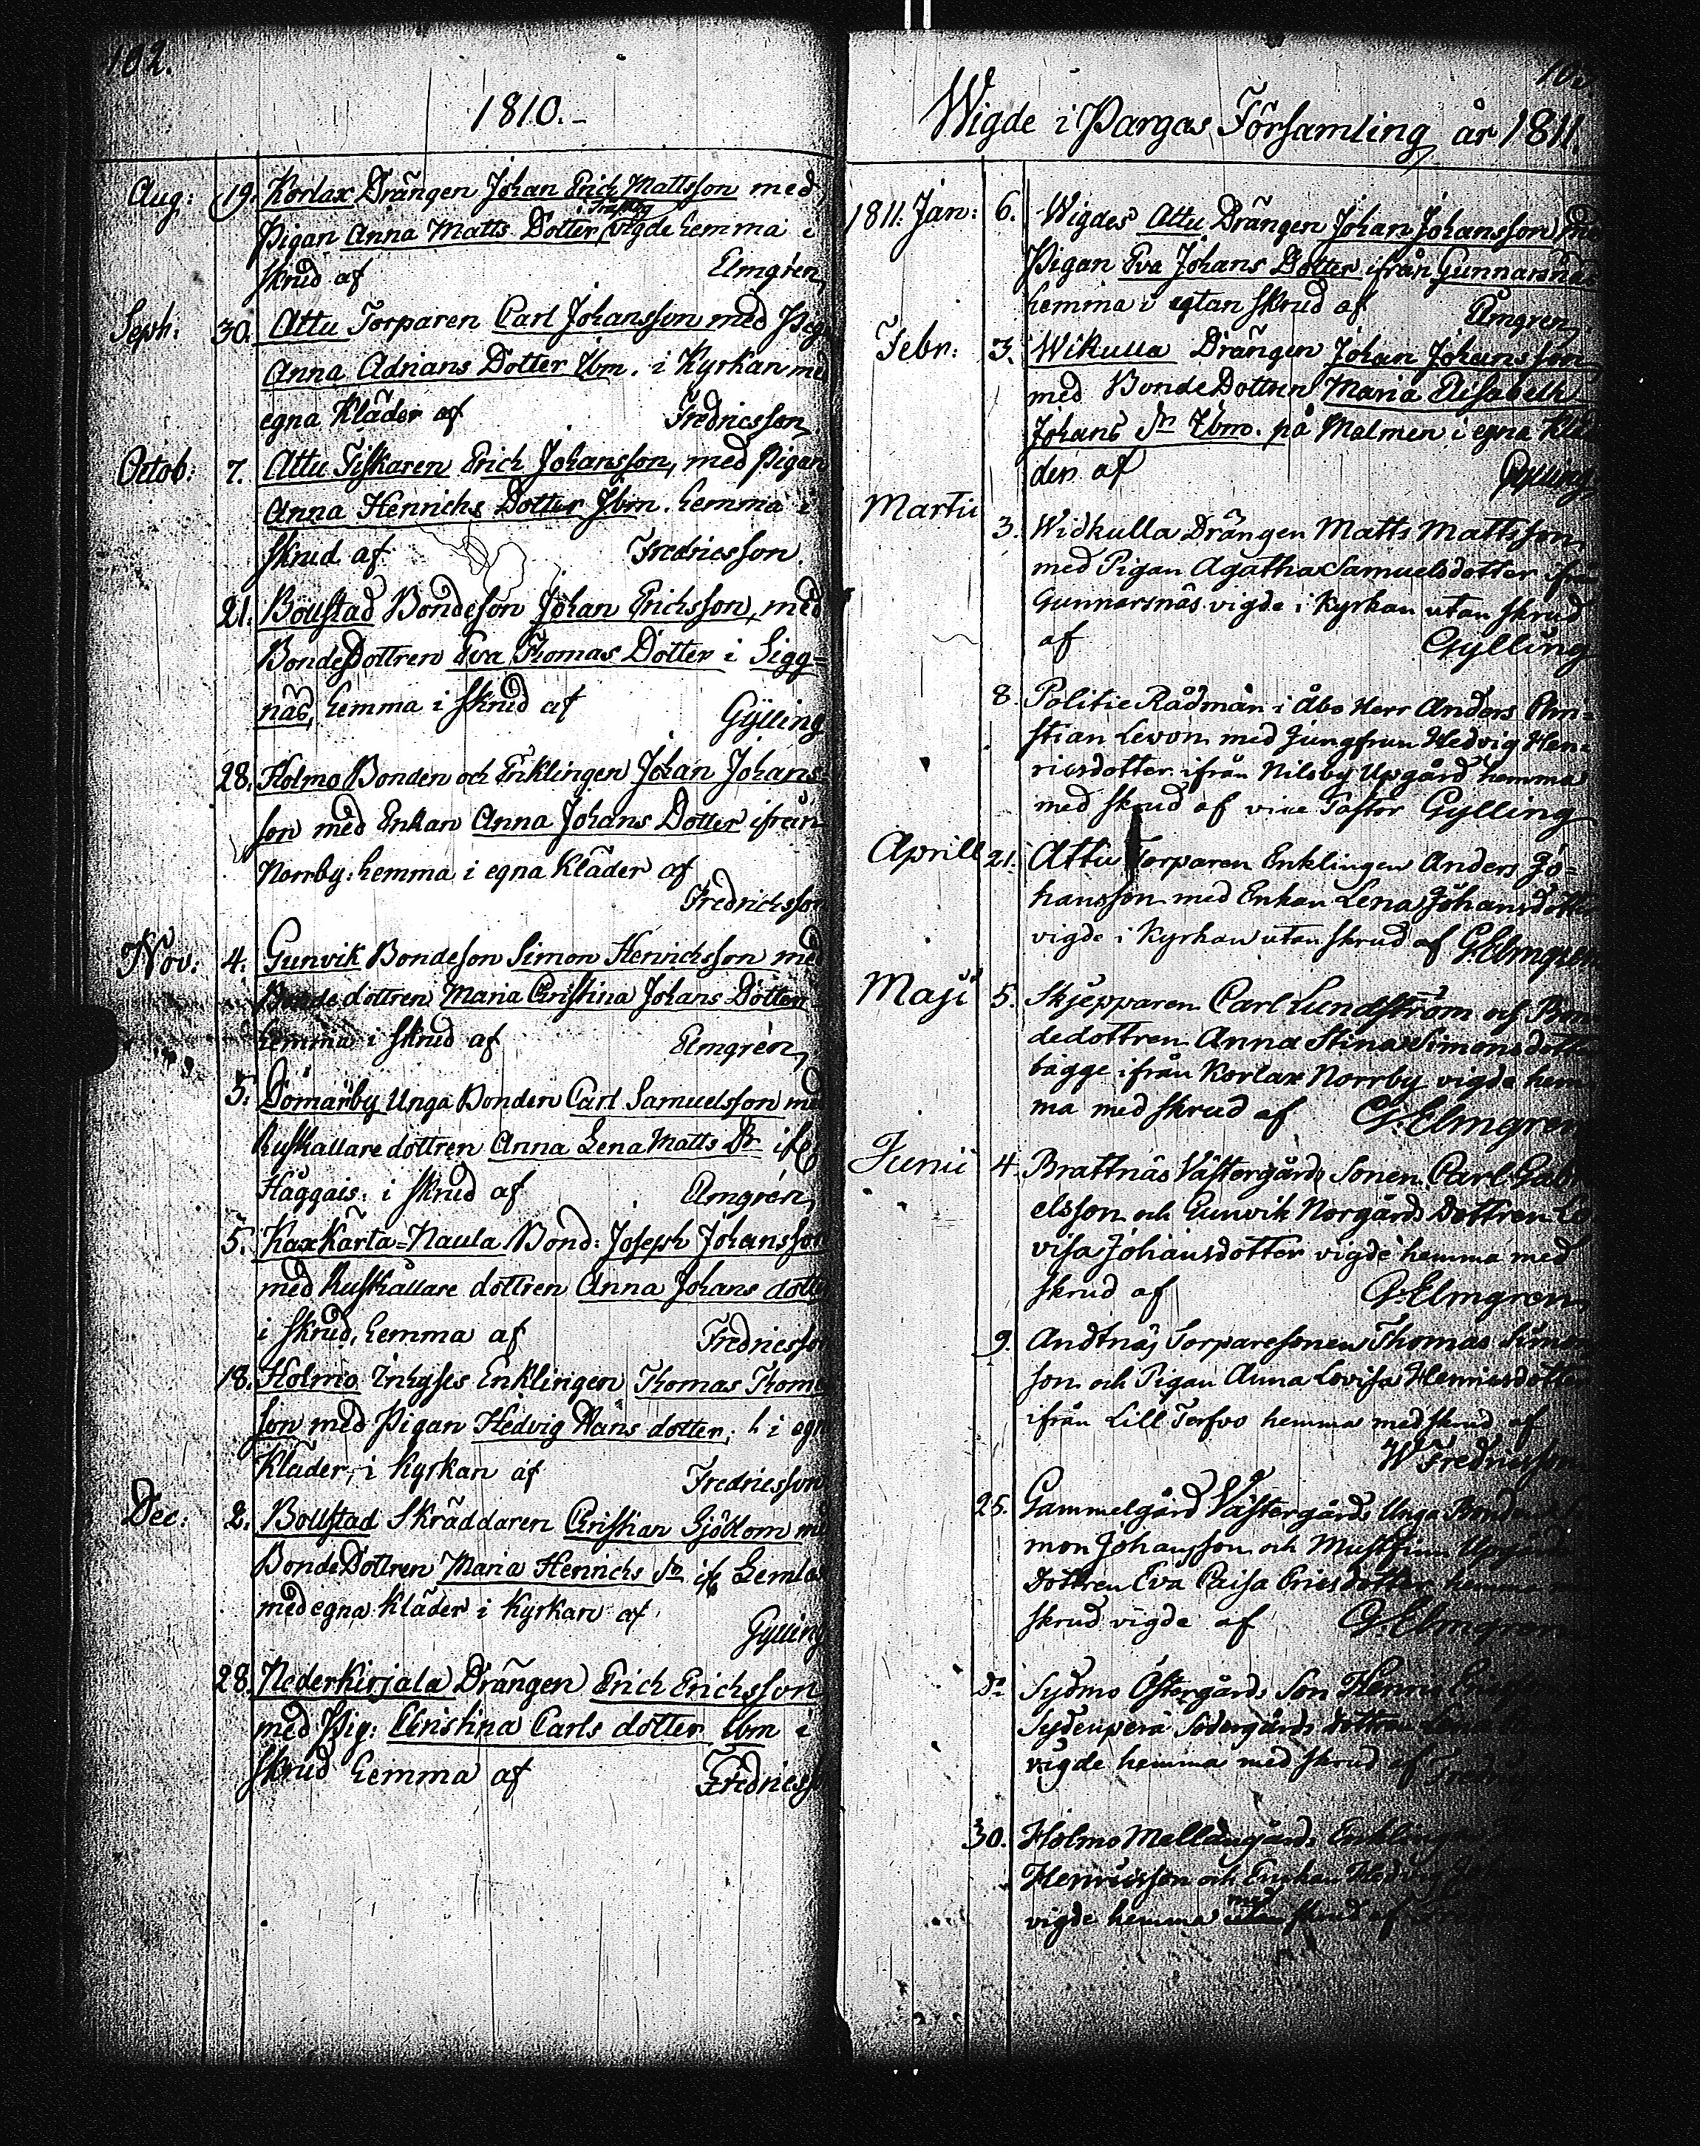 102.
1810.
Aug: 19. Korlax Drängen Johan Erich Mattsson med
Pigan Anna Matts Dotter, vigde hemma i
skrud af Elmgren
Seph: 30. Attu Torparen Carl Johansson med Piga
Anna Adrians Dotter Ibm. i Kyrkan med
egna Kläder af Fredricsson
Octob: 7. Attu Fiskaren Erich Johansson, med Pigan
Anna Henrichs Dotter Ibm. hemma i
skrud af Fredricsson.
21. Bollstad Bondeson Johan Erichsson, med
BondeDottren Eva Thomas Dotter i Sigg=
näs, hemma i skrud af Gylling
28. Holmo Bonden och Enklingen Johan Johans=
son med Enkan Anna Johans Dotter ifrån
Norrby: hemma i egna Kläder af
Fredrichsson
Nov: 4. Gunvik Bondeson Simon Henrichsson med
Bonde dottren Maria Christina Johans Dotter
hemma i skrud af Elmgren
5. Dömarby Unga Bonden Carl Samuelsson med
Rusthållare dottren Anna Lena Matts Dr
Häggais: i skrud af Elmgren
5. Kaxkärta=Naula Bond: Joseph Johansson
med Rusthållare dottren Anna Johans dotter
i skrud, hemma af Fredricsson
18. Holmo Inhyses Enklingen Thomas Thoma
son med Pigan Hedvig Hans dotter; h i egn
Kläder, i Kyrkan af Fredricsson
Dec: 2. Bollstad Skräddaren Christian Sjöblom med
BondeDottren Maria Henrichs Dr Lemla
med egna Kläder i Kyrkan af
Gylling
28. Nederkirjala Drängen Erich Erichsson
med Pig: Christina Carls dotter Ibm i
skrud hemma af Fredricss
Wigde i Pargas Församling år 1811.
1811. Jan: 6. Wigdes Attu Drängen Johan Johansson med
Pigan Eva Johans Dotter ifrån Gunnarsnäs
hemma i utan skrud af Elmgren.
Febr: 3. Wikulla Drängen Johan Johansson
med BondeDottren Maria Elisabeth
Johans Dr Ibm. på Malmen i egna Klä
der af
Martii 3. Widkulla Drängen Matts Mattsson
med Pigan Agatha Samuelsdotter ifrån
Gunnarsnäs vigde i Kyrkan utan skrud
af Gylling
8. Politie Rådman i Åbo Herr Anders Chri=
stian Levon med Jungfrun Hedvig Hen=
ricsdotter ifrån Nilsby Upgård hemma
med skrud af vice Pastor Gylling
Aprill 21. Attu Torparen Enklingen Anders Jo=
hansson med Enkan Lena Johansdotter
vigde i Kyrkan utan skrud af G. Elmgren
Maji 5. Skjepparen Carl Lundström och Bon
dedottren Anna Stina Simonsdotter
bägge ifrån Korlax Norrby vigde hem
ma med skrud af G. Elmgren
Junii 4. Brattnäs Västergårds Sonen Carl Gabri
elsson och Gunvik Norgårds Dottren Lo
visa Johansdotter vigde hemma med
skrud af G. Elmgren
9. Andtnäs Torparesonen Thomas Simons
son och Pigan Anna Lovisa Henricsdotter
ifrån Lill Terfvo hemma med skrud af
W Fredricsson
25. Gammelgård Västergårds Unga Bonden Si
mon Johansson och Mustfinn Upgård
Dottren Eva Caisa Ericsdotter hemma
skrud vigde af G. Elmgren
Do Sydmo Östergårds Son Henric
Sydenperä Södergårds dottren
vigde hemma med skrud af
30. Holmo Mellangårds Enklingen
Henricsson och Enkan Hedvig
vigde hemma med skrud af